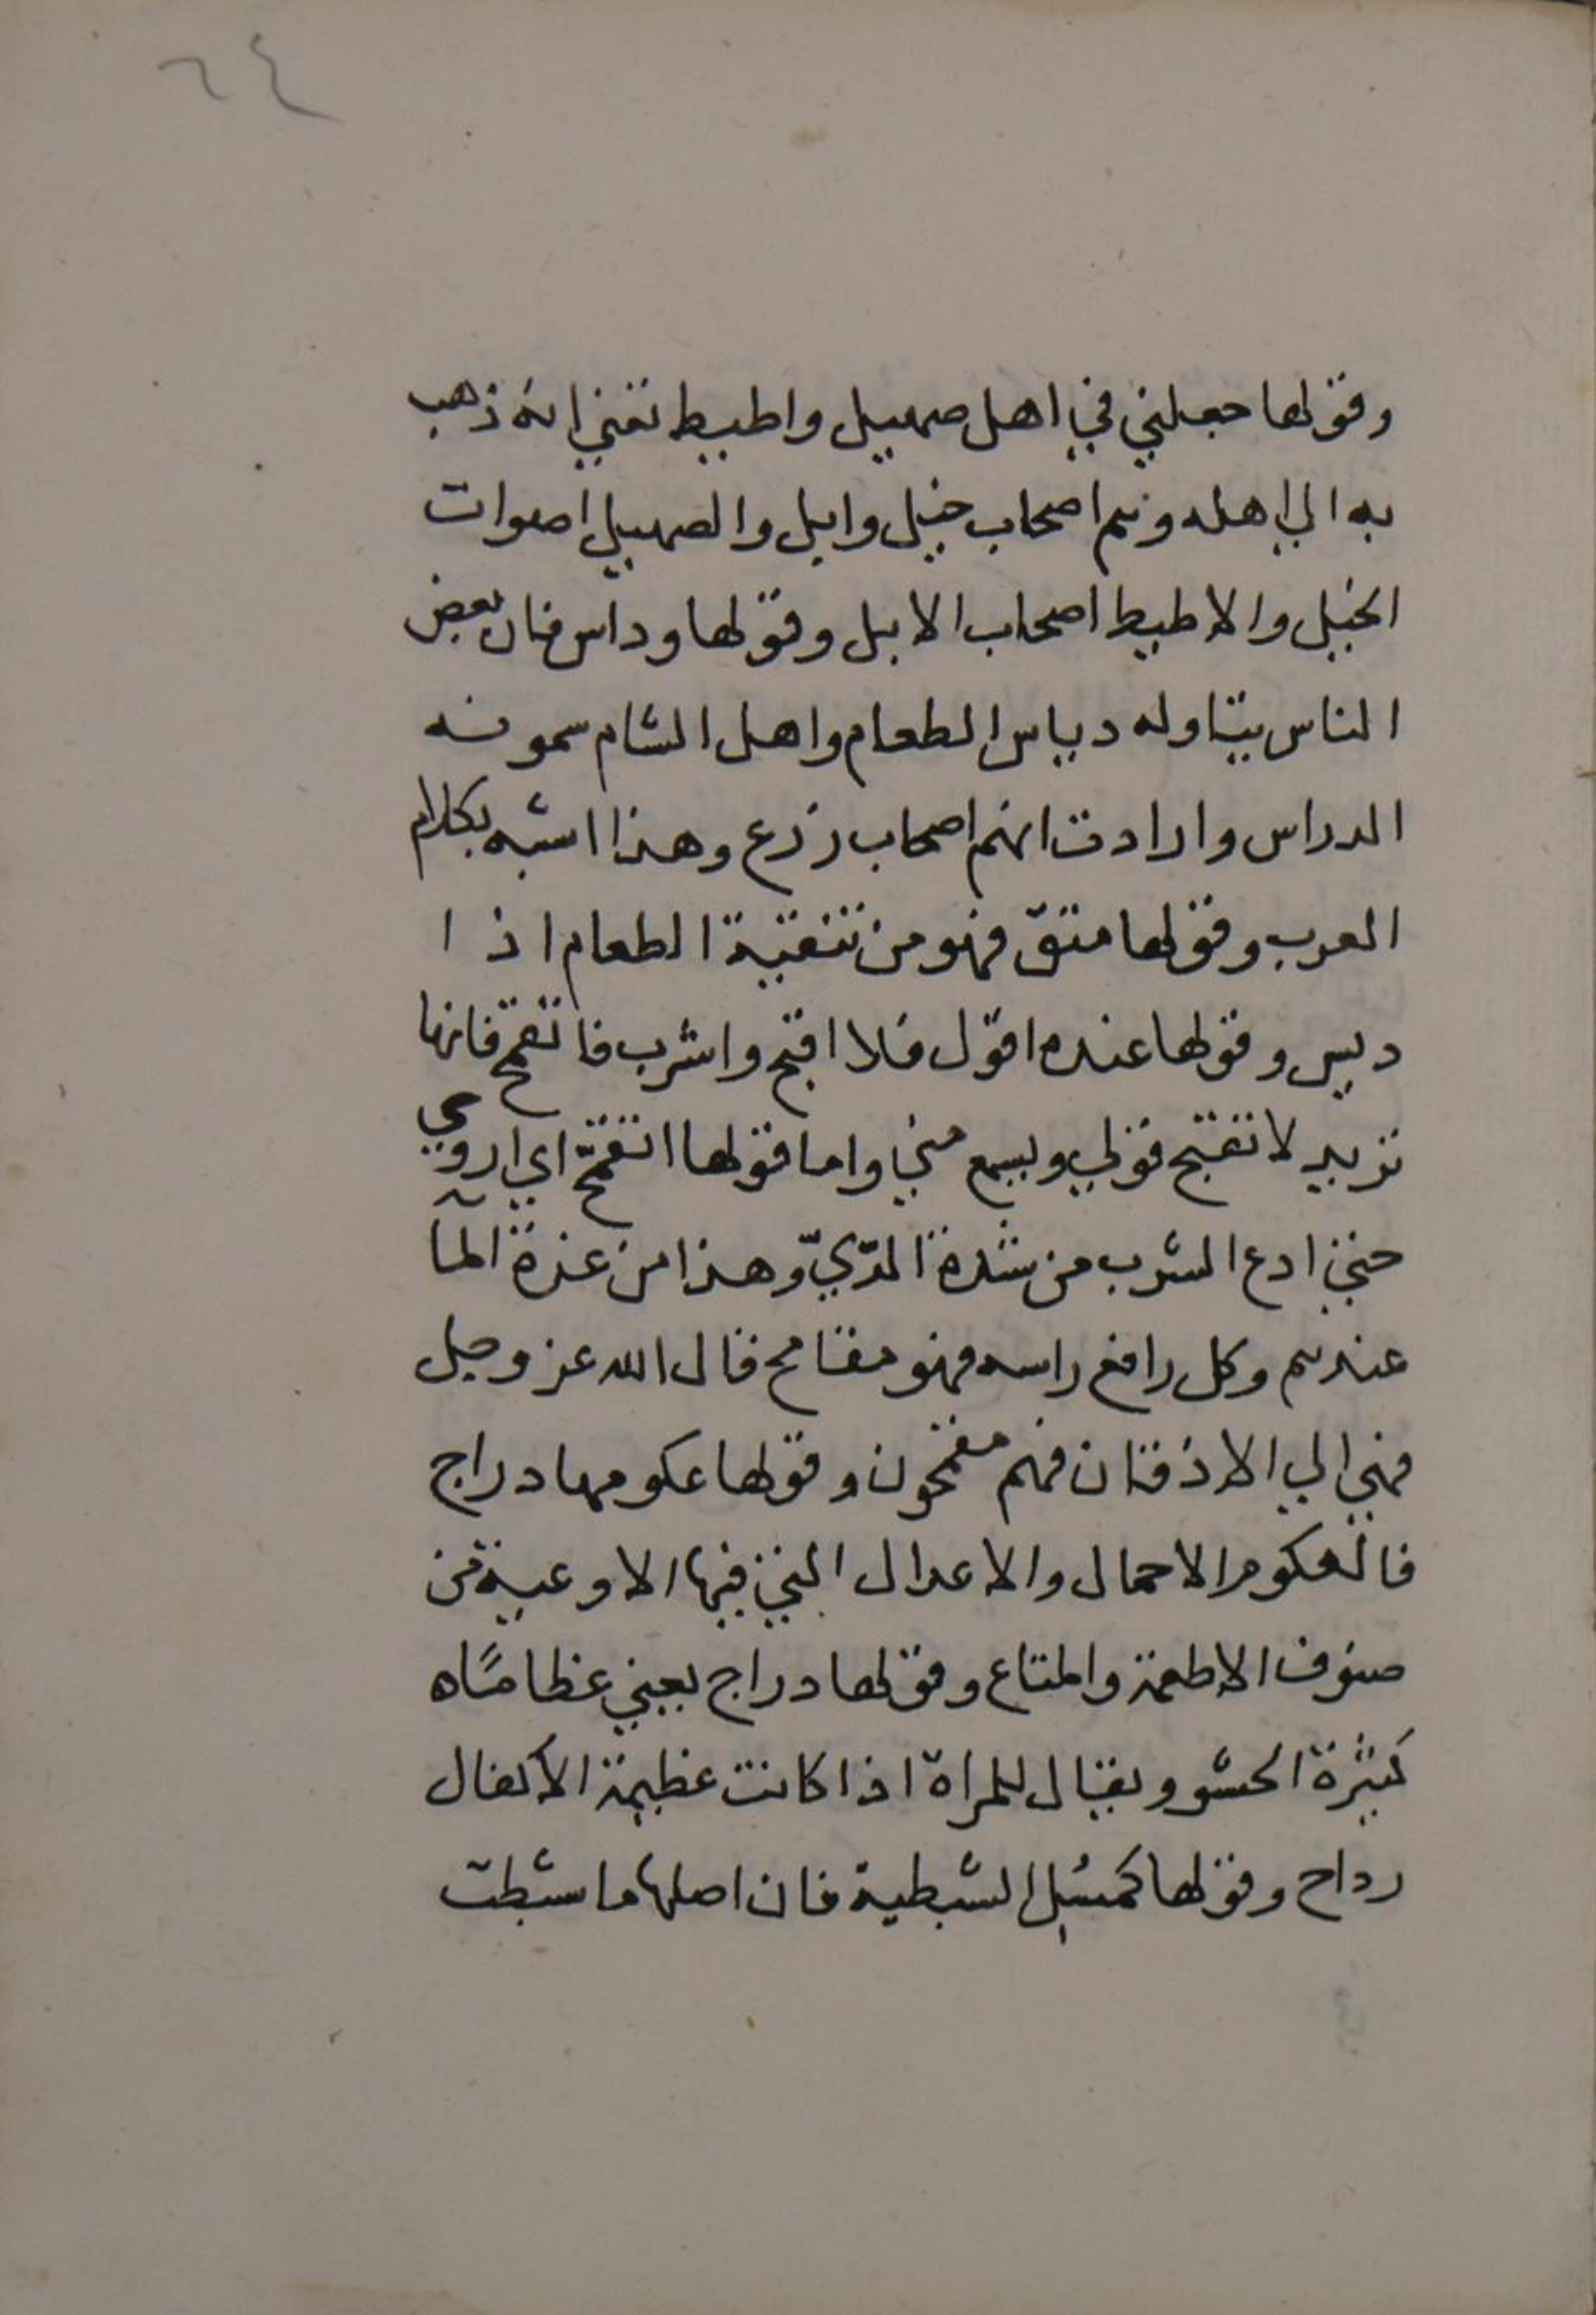 ٦٤
وقولها جعلني في اهل صهيل واطيط تعني انه ذهب
به الي اهله وهم اصحاب خيل وابل والصهيل اصوات
الخيل والاطيط اصحاب الابل وقولها وداس فان بعض
الناس يتاوله دياس الطعام واهل الشام سمونه
الدراس وارادت انهم اصحاب زرع وهذا اشبه بكلام
العرب وقولها منقّ فهو من تنقية الطعام اذا
ديس وقولها عنده اقول فلا اقبح واشرب فاتقمح فانها
تريد لا تقبح قولي ويسمع مني واما قولها اتقمّح اي اروي
حتي ادع الشرب من شدة الرّيّ وهذا من عزة المآ
عندهم وكل رافع راسه فهو مقامح قال الله عز وجل
فهي الي الاذقان فهم مقمحون وقولها عكومها دراج
فالعكوم الاحمال والاعدال التي فيها الاوعية من
صنوف الاطعمة والمتاع وقولها دراج يعني عظامًاه
كثيرة الحشو ويقال للمراة اذا كانت عظيمة الاكفال
رداح وقولها كمسل الشطبة فان اصلها ما شطبت